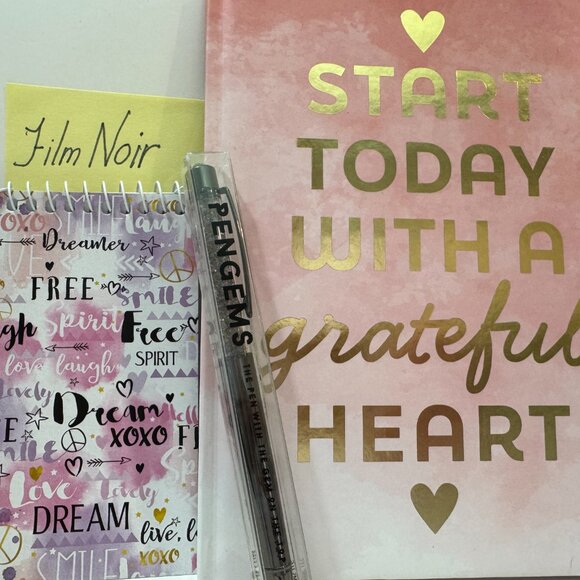 Film Noir
XOXO SMILE laugh
Dreamer
LOVE
FREE
SMILE
laugh Spirit Free
SPIRIT
love laugh
Lovely
Dream
XOXO
FREE
Love
DREAM
live,
XOXO
SMILE
PENGEMS
THE PEN WITH THE GEM ON THE TOP
START
TODAY
WITH A
grateful
HEART